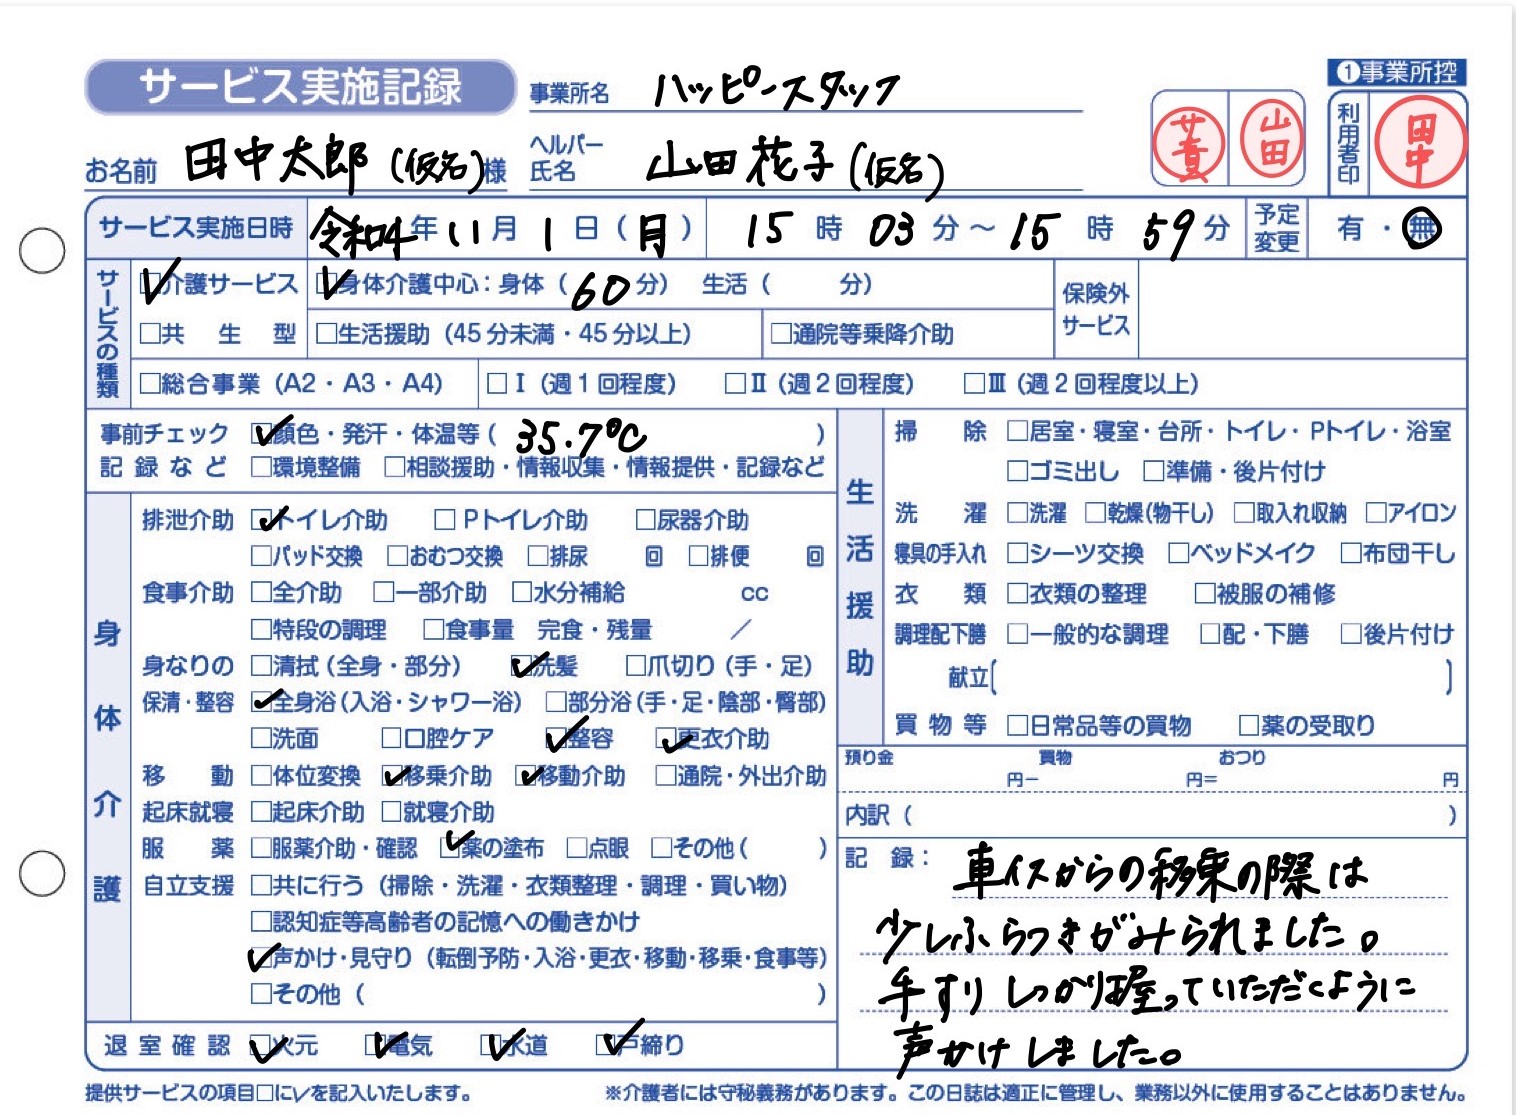 サービス実施記録 事業所名 ハッピースタッフ ❶事業所控
お名前 田中太郎(仮名)様 ヘルパー氏名 山田花子(仮名) 山田 利用者印 田中
サービス実施日時 令和4年11月1日(月) 15時03分～15時59分 予定変更 有・無
サービスの種類
☑介護サービス ☑身体介護中心:身体(60分) 生活( 分) 保険外サービス
□共生型 □生活援助(45分未満・45分以上) □通院等乗降介助
□総合事業(A2・A3・A4) □Ⅰ(週1回程度) □Ⅱ(週2回程度) □Ⅲ(週2回程度以上)
事前チェック ☑顔色・発汗・体温等(35.7℃)
記録など □環境整備 □相談援助・情報収集・情報提供・記録など
身体介護
排泄介助 ☑トイレ介助 □Pトイレ介助 □尿器介助
□パッド交換 □おむつ交換 □排尿 回 □排便 回
食事介助 □全介助 □一部介助 □水分補給 cc
□特段の調理 □食事量 完食・残量 ／
身なりの □清拭(全身・部分) ☑洗髪 □爪切り(手・足)
保清・整容 ☑全身浴(入浴・シャワー浴) □部分浴(手・足・陰部・臀部)
□洗面 □口腔ケア ☑整容 ☑更衣介助
移動 □体位変換 ☑移乗介助 ☑移動介助 □通院・外出介助
起床就寝 □起床介助 □就寝介助
服薬 □服薬介助・確認 ☑薬の塗布 □点眼 □その他( )
自立支援 □共に行う(掃除・洗濯・衣類整理・調理・買い物)
□認知症等高齢者の記憶への働きかけ
☑声かけ・見守り(転倒予防・入浴・更衣・移動・移乗・食事等)
□その他( )
退室確認 ☑火元 ☑電気 ☑水道 ☑戸締り
生活援助
掃除 □居室・寝室・台所・トイレ・Pトイレ・浴室
□ゴミ出し □準備・後片付け
洗濯 □洗濯 □乾燥(物干し) □取入れ収納 □アイロン
寝具の手入れ □シーツ交換 □ベッドメイク □布団干し
衣類 □衣類の整理 □被服の補修
調理配下膳 □一般的な調理 □配・下膳 □後片付け
献立[ ]
買物等 □日常品等の買物 □薬の受取り
預り金 円− 買物 円= おつり 円
内訳( )
記録: 車イスからの移乗の際は
少しふらつきがみられました。
手すりしっかり握っていただくように
声かけしました。
提供サービスの項目□に✓を記入いたします。 ※介護者には守秘義務があります。この日誌は適正に管理し、業務以外に使用することはありません。